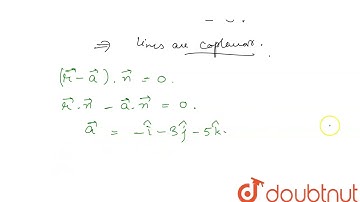 ⇒ lines are coplanar.
(r⃗ - a⃗) . n⃗ = 0.
r⃗ . n⃗ - a⃗ . n⃗ = 0.
a⃗ = -î - 3ĵ - 5k̂.
doubtnut